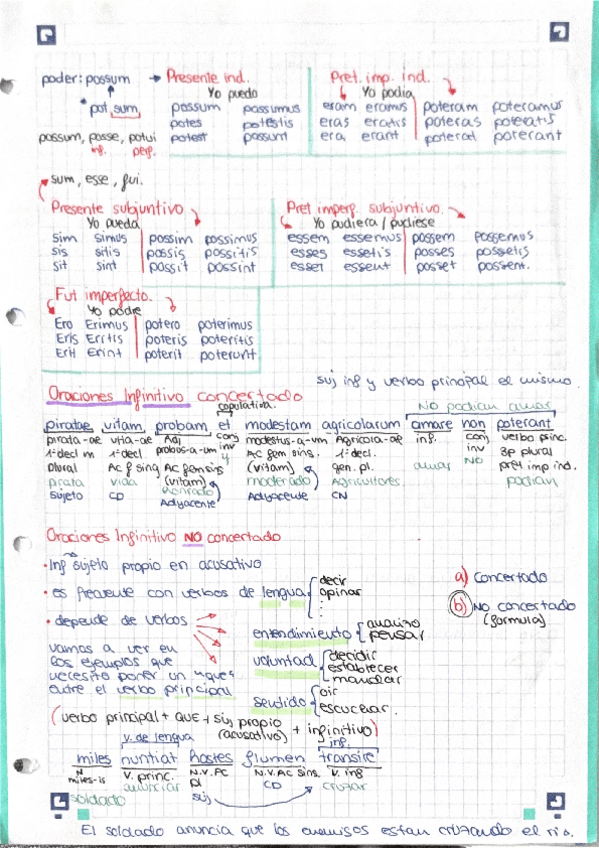 poder: possum → Presente ind. Pret. imp. ind.
Yo puedo Yo podia
pot sum possum possumus eram eramus poteram poteramus
potes potestis eras eratis poteras poteratis
possum, posse, potui potest possunt era erant poterat poterant
inf. perf.
sum, esse, fui.
Presente subjuntivo Pret imperf. subjuntivo.
Yo pueda Yo pudiera / pudiese
sim simus possim possimus essem essemus possem possemus
sis sitis possis possitis esses essetis posses possetis
sit sint possit possint esset essent posset possent.
Fut imperfecto.
Yo podre
Ero Erimus potero poterimus
Eris Eritis poteris poteritis
Erit Erint poterit poterunt
suj inf y verbo principal el mismo.
Oraciones Infinitivo concertado
copulativa. No podian amar
piratae vitam, probam et modestam agricolarum amare non poterant
pirata-ae vita-ae Adj conj modestus-a-um Agricola-ae inf. conj verbo princ.
1ª decl m 1ª decl probus-a-um inv AC fem sing. 1ª decl. inv 3p plural
plural AC f sing AC fem sing (vitam) gen. pl. amar NO pret imp ind.
pirata vida (vitam) moderado Agricultores. podian
sujeto CD Adyacente Adyacente CN
Oraciones Infinitivo NO concertado
• Inf no sujeto propio en acusativo
• es frecuente con verbos de lengua decir
opinar
a) Concertado
b) No concertado
(formula)
• depende de verbos
entendimiento
pensar
vamos a ver en
los ejemplos que
necesito poner un "que"
entre el verbo principal
voluntad decidir
establecer
mandar
sentido oir
escuchar.
(verbo principal + QUE + suj propio (acusativo) + infinitivo)
v. de lengua inf.
miles nuntiat hostes flumen transire
N V. princ. N.V.AC N.V.AC Sing. V. inf
miles-is anunciar pl CD cruzar
soldado suj
El soldado anuncia que los enemigos estan cruzando el rio.